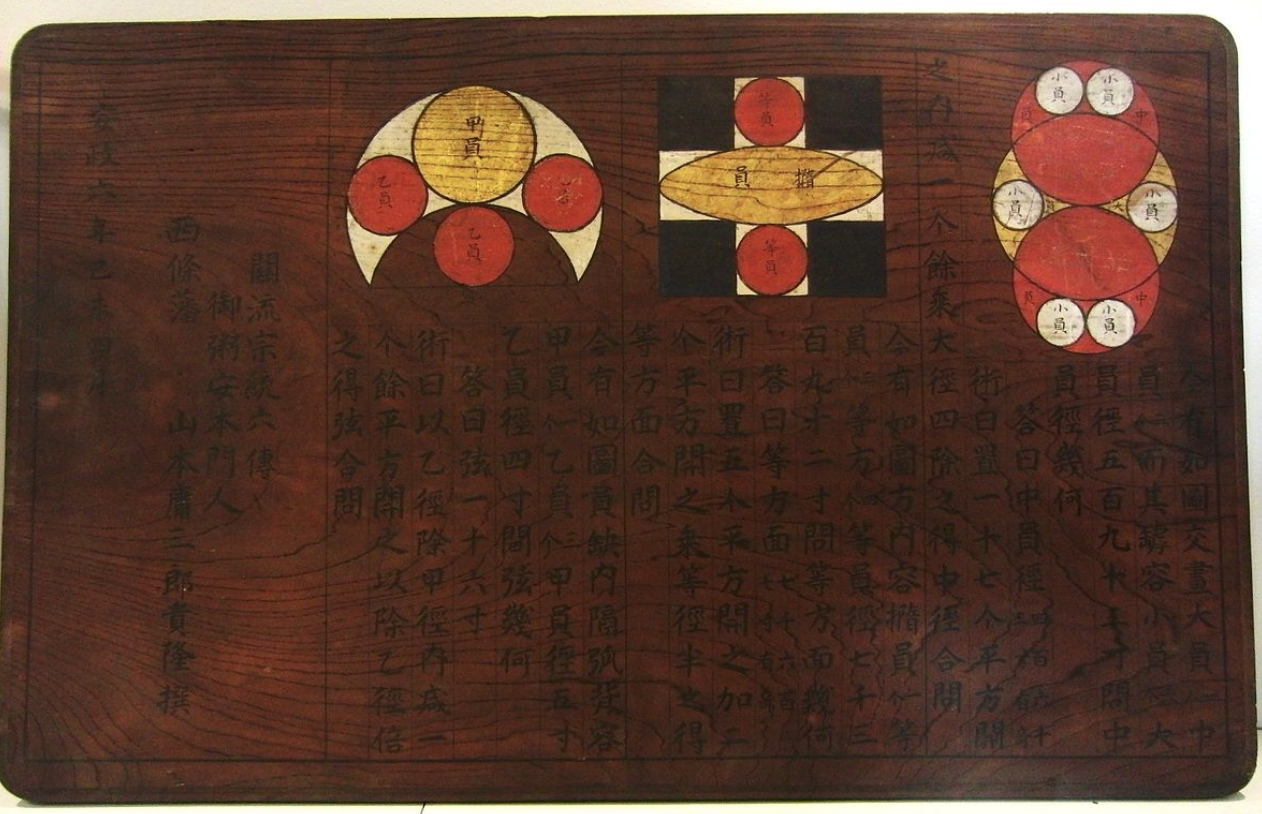 小員
小員
中
員
小員
小員
中
員
小員
小員
今有如圖交畫大員中
員而其罅容小員大
員徑五百九十五寸問中
員徑幾何
答曰中員徑
術曰置一十七个平方開
之内減一个餘乘大徑四除之得中徑合問
等員
擶員
等員
今有如圖方内容擶員等
員等方等員徑七千三
百九十二寸問等方面幾何
答曰等方面
術曰置五个平方開之加二
个平方開之乘等徑半之得
等方面合問
甲員
乙員
乙員
乙員
今有如圖員缺内隔弧背容
甲員乙員甲員徑五寸
乙員徑四寸問弦幾何
答曰弦一十六寸
術曰以乙徑除甲徑内減一
个餘平方開之以除乙徑倍
之得弦合問
關流宗統六傳
御術安本門人
西條藩 山本庸三郎貴隆撰
安政六年己未